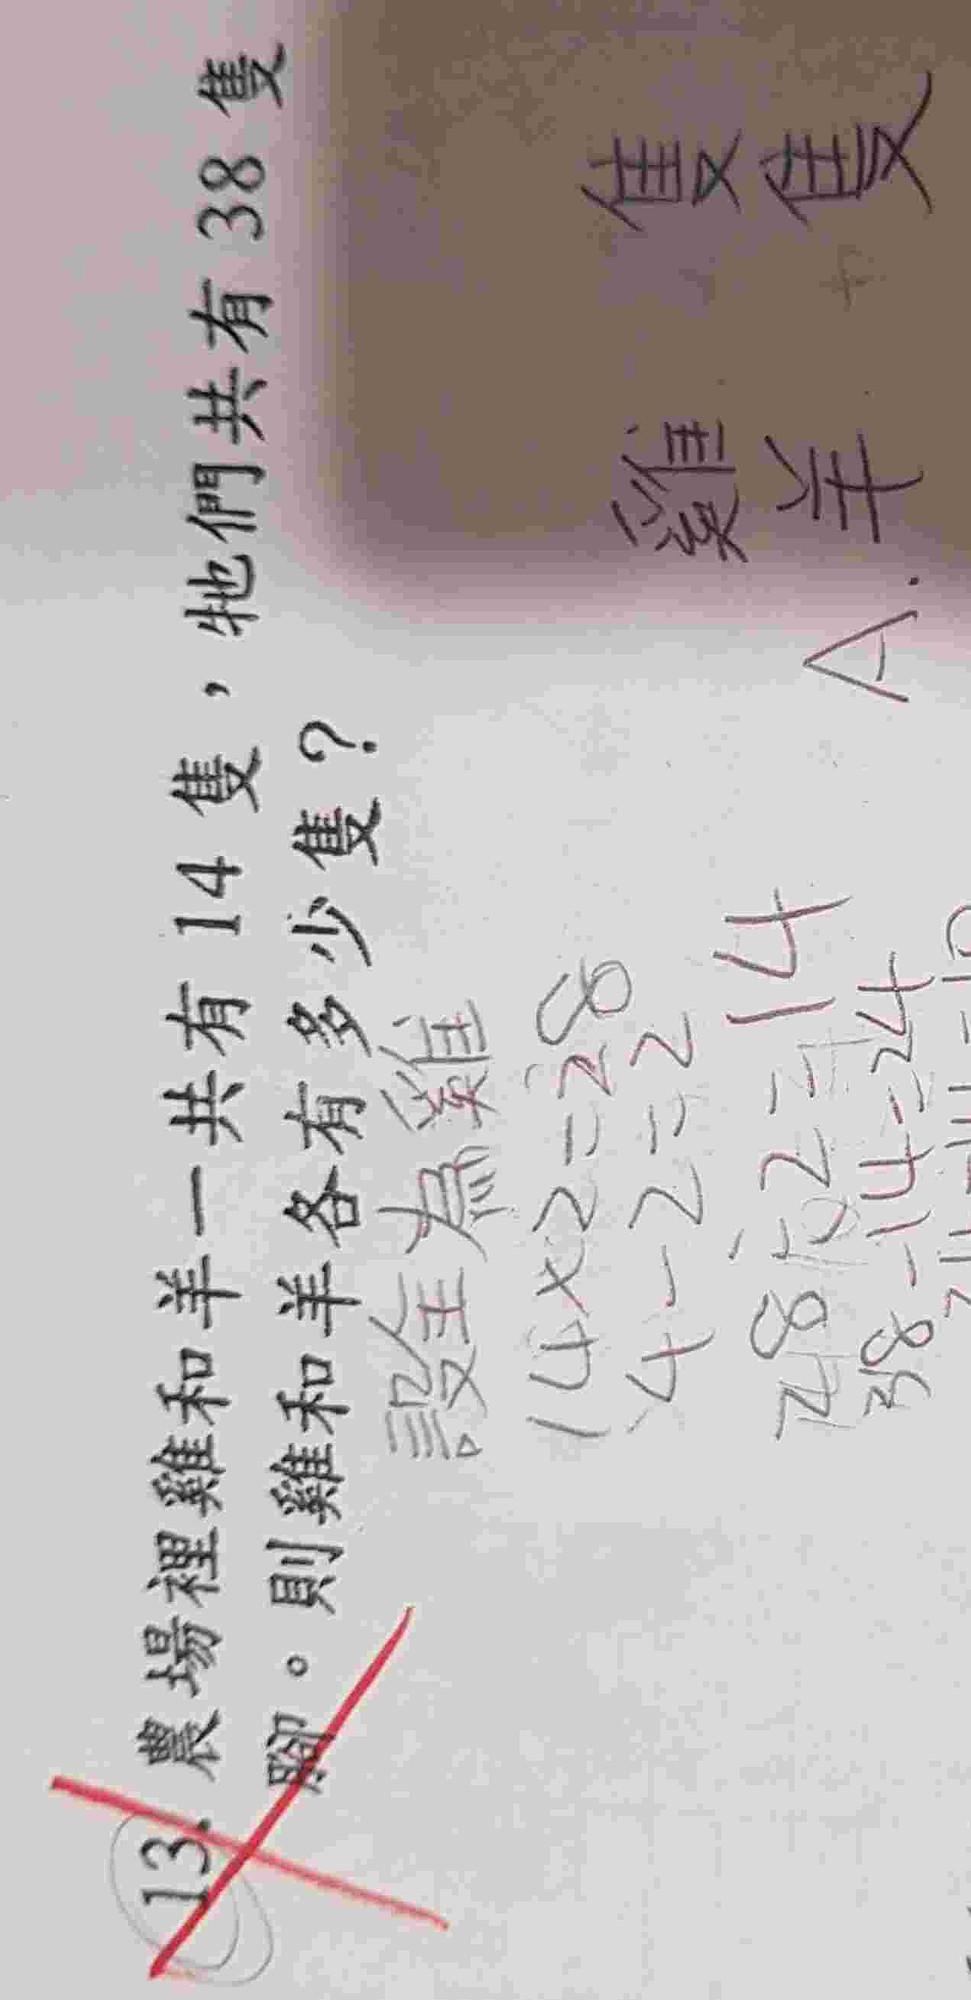 13. 農場裡雞和羊一共有 14 隻，牠們共有 38 隻
腳。則雞和羊各有多少隻？
設全為雞
14×2=28
4-2=2
28÷2=14
38-14=24
雞 隻
A. 羊 隻